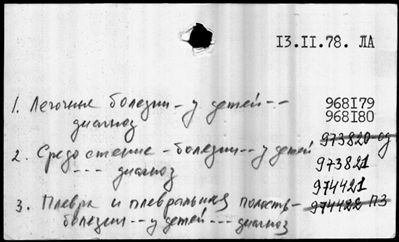 13.II.78. ЛА
1. Легочные болезни - у детей --
диагноз
968I79
968I80
973820-сд
2. Средостение - болезни -- у детей
--- диагноз
973821
974421
3. Плевра и плевральная полость-
болезни -- у детей --- диагноз
974422 ПЗ